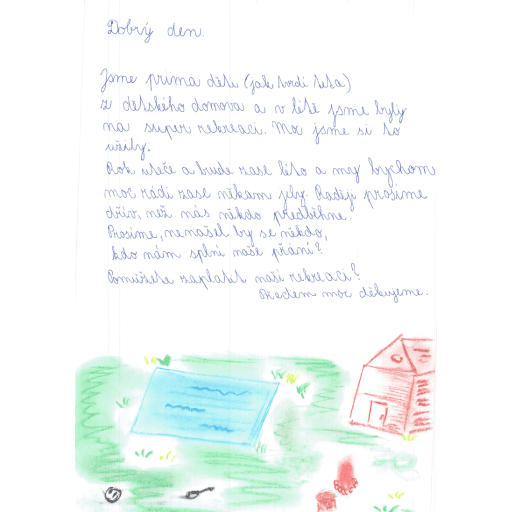 Dobrý den.
Jsme prima děti (jak tvrdí teta)
z dětského domova a v létě jsme byly
na super rekreaci. Moc jsme si to
užily.
Rok uteče a bude zase léto a my bychom
moc rádi zase někam jely. Raději prosíme
dřív, než nás někdo předběhne.
Prosíme, nenašel by se někdo,
kdo nám splní naše přání?
Pomůžete zaplatit naši rekreaci?
Předem moc děkujeme.